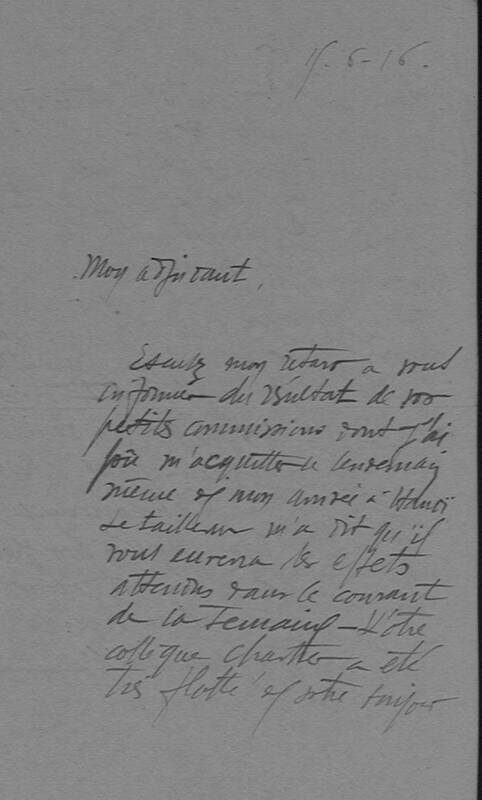 15. 6-16.
Mon adjudant,
Excusez mon retard à vous
informer du résultat de vos
petites commissions dont j'ai
pu m'acquitter le lendemain
même de mon arrivée à Hanoï
Le tailleur m'a dit qu'il
vous enverra les effets
attendus dans le courant
de la semaine - Votre
collègue a été
très flatté de votre bonjour